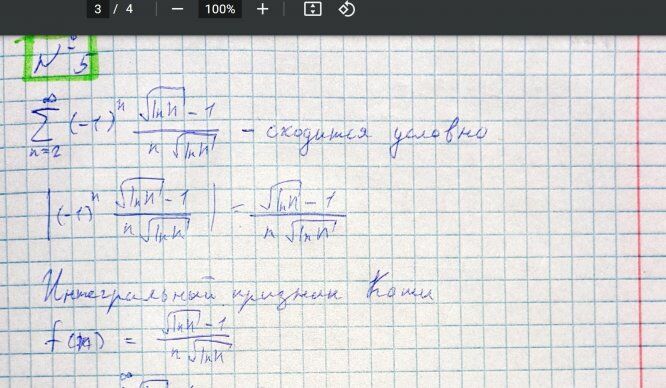 3 / 4 — 100% +
№5
∞ ∑ n=2 (-1)ⁿ (√ln n - 1)/(n √ln n) - сходится условно
|(-1)ⁿ (√ln n - 1)/(n √ln n)| = (√ln n - 1)/(n √ln n)
Интегральный признак Коши
f(n) = (√ln n - 1)/(n √ln n)
∞